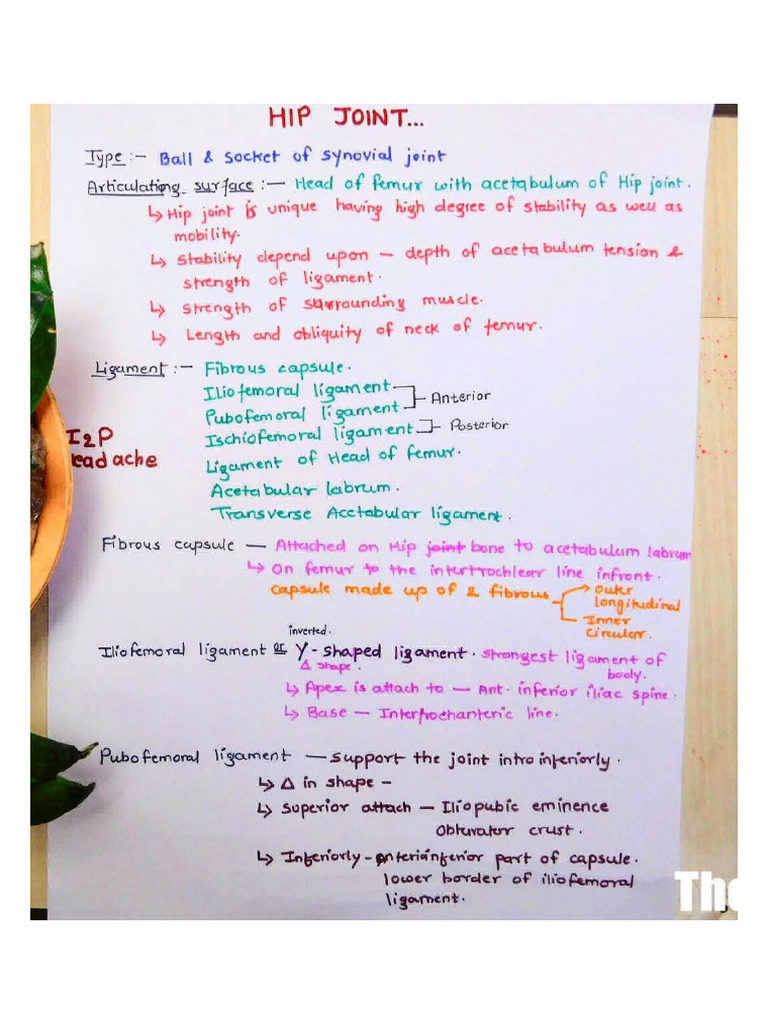 HIP JOINT...
Type :- Ball & Socket of synovial joint
Articulating surface :- Head of femur with acetabulum of Hip joint.
↳ Hip joint is unique having high degree of stability as well as
mobility.
↳ Stability depend upon - depth of acetabulum tension &
strength of ligament.
↳ Strength of surrounding muscle.
↳ Length and obliquity of neck of femur.
Ligament :- Fibrous capsule.
Iliofemoral ligament
Pubofemoral ligament
Anterior
Ischiofemoral ligament
Posterior
Ligament of Head of femur.
Acetabular labrum.
Transverse Acetabular ligament.
I2P
eadache
Fibrous capsule - Attached on Hip joint bone to acetabulum labrum
↳ On femur to the intertrochlear line infront.
capsule made up of 2 fibrous
outer
longitudinal
Inner
circular.
Iliofemoral ligament or inverted Y-shaped ligament. strongest ligament of
Δ shape.
body.
↳ Apex is attach to - Ant. inferior iliac spine.
↳ Base - Intertrochanteric line.
Pubofemoral ligament - support the joint intro inferiorly.
↳ Δ in shape -
↳ Superior attach - Iliopubic eminence
Obturator crust.
↳ Inferiorly - anteriainferior part of capsule.
lower border of iliofemoral
ligament.
The